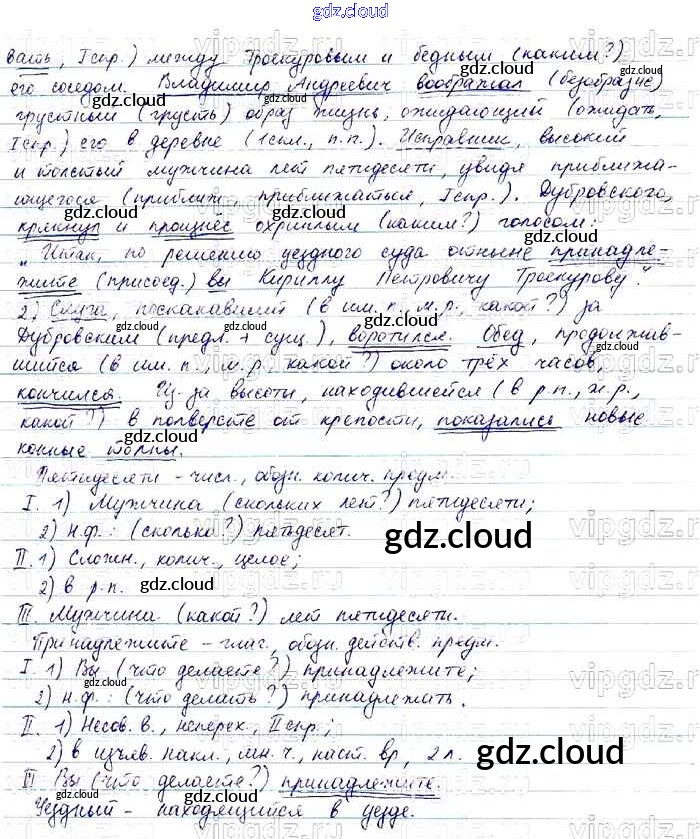 gdz.cloud
вать, I спр.) между Троекуровым и бедным (каким?)
его соседом. Владимир Андреевич воображал (безобразие)
грустный (грусть) образ жизнь, ожидающий (ожидать,
I спр.) его в деревне (1 скл., п.п.). Исправник, высокий
и толстый мужчина лет пятидесяти, увидя приближа-
ющегося (приближ, приближаться, I спр.). Дубровского,
крякнул и произнёс охриплым (каким?) голосом:
„Итак, по решению уездного суда отныне принадле-
жите (присоед.) вы Кириллу Петровичу Троекурову".
2) Слуга, поскакавший (в им. п., м.р., какой?) за
Дубровским (предл. + сущ.), воротился. Обед, продолжив-
шийся (в им. п., м.р., какой?) около трёх часов,
кончился. Из-за высоты, находившейся (в р.п., ж.р.,
какой?) в полверсте от крепости, показались новые
конные толпы.
Пятидесяти - числ., обозн. колич. предм.
I. 1) Мужчина (скольких лет?) пятидесяти;
2) н.ф.: (сколько?) пятьдесят.
II. 1) Сложн., колич., целое;
2) в р.п.
III. Мужчина (какой?) лет пятидесяти.
Принадлежите - глаг., обозн. действ. предм.
I. 1) Вы (что делаете?) принадлежите;
2) н.ф.: (что делать?) принадлежать.
II. 1) Несов. в., неперех., II спр.;
2) в изъяв. накл., мн. ч., наст. вр., 2 л.
III Вы (что делаете?) принадлежите.
Уездный - находящийся в уезде.